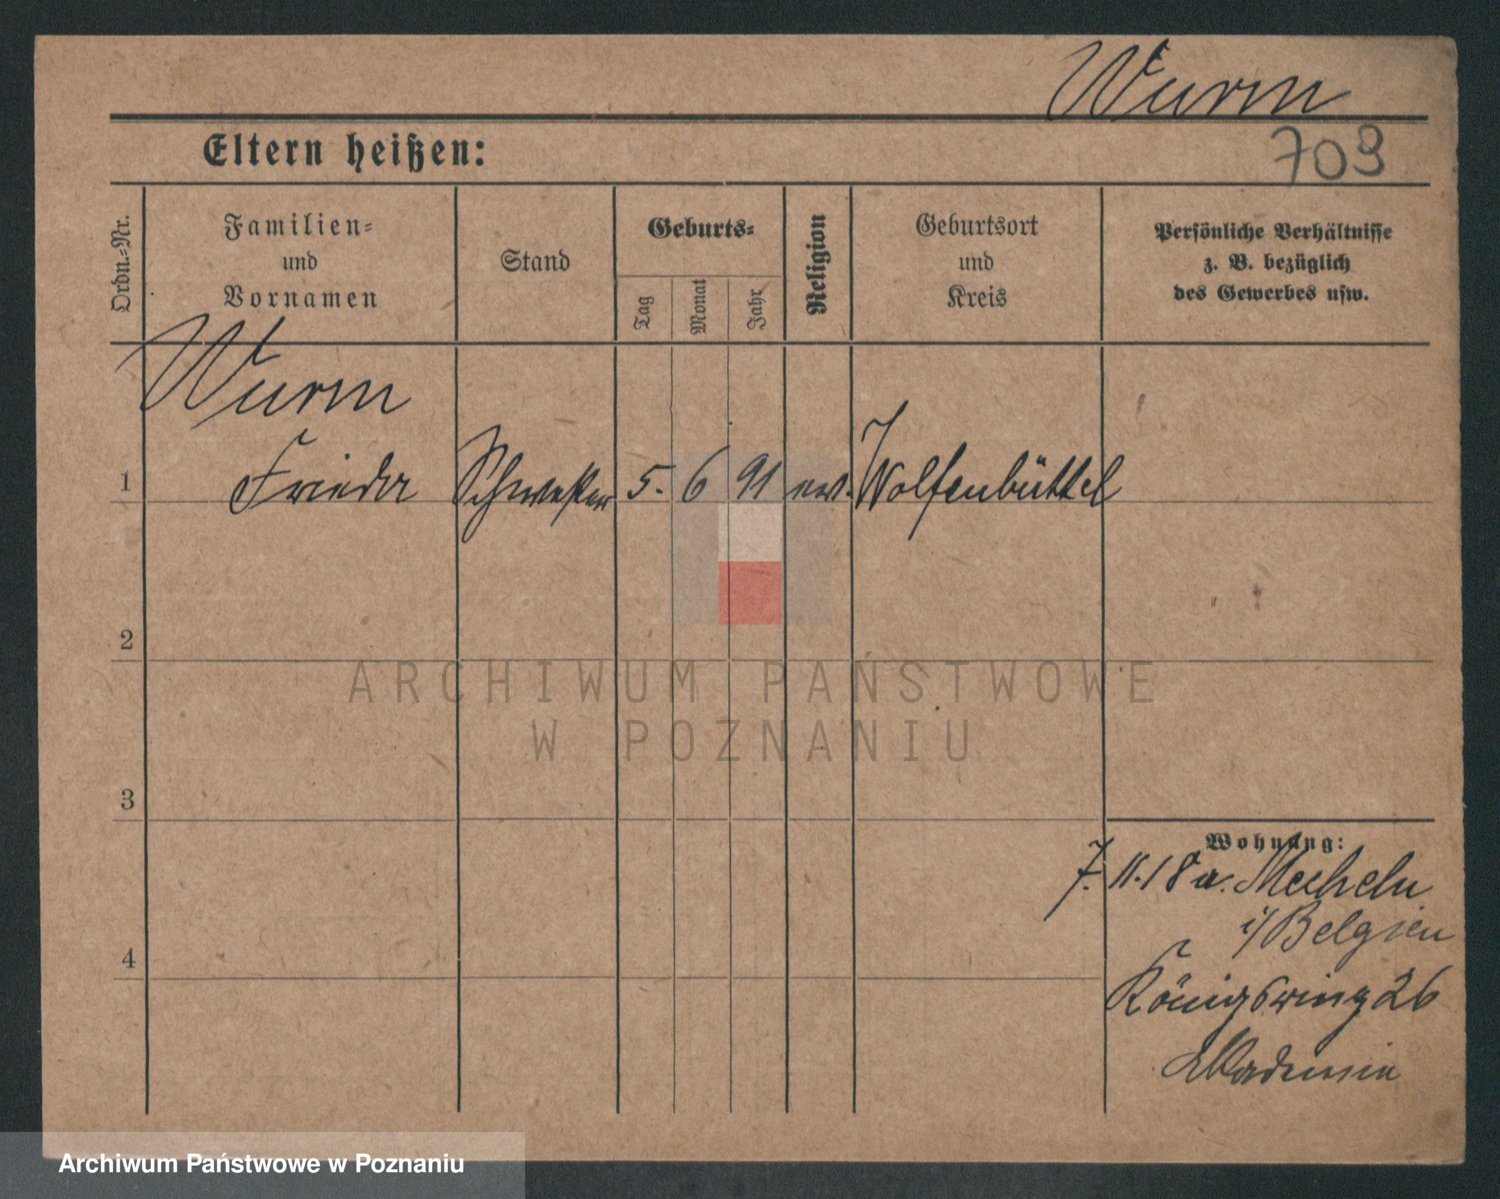 Wurm
Eltern heißen:
709
Ordn.-Nr.
Familien-
und
Vornamen
Stand
Geburts-
Tag
Monat
Jahr
Religion
Geburtsort
und
Kreis
Persönliche Verhältnisse
z. B. bezüglich
des Gewerbes usw.
Wurm
1 Frieda Schwester 5. 6 91 ev. Wolfenbüttel
2
ARCHIWUM PAŃSTWOWE
W POZNANIU
3
Wohnung:
7. 11. 18 a. Mecheln
i/Belgien
4
Königsring 26
Akademie
Archiwum Państwowe w Poznaniu